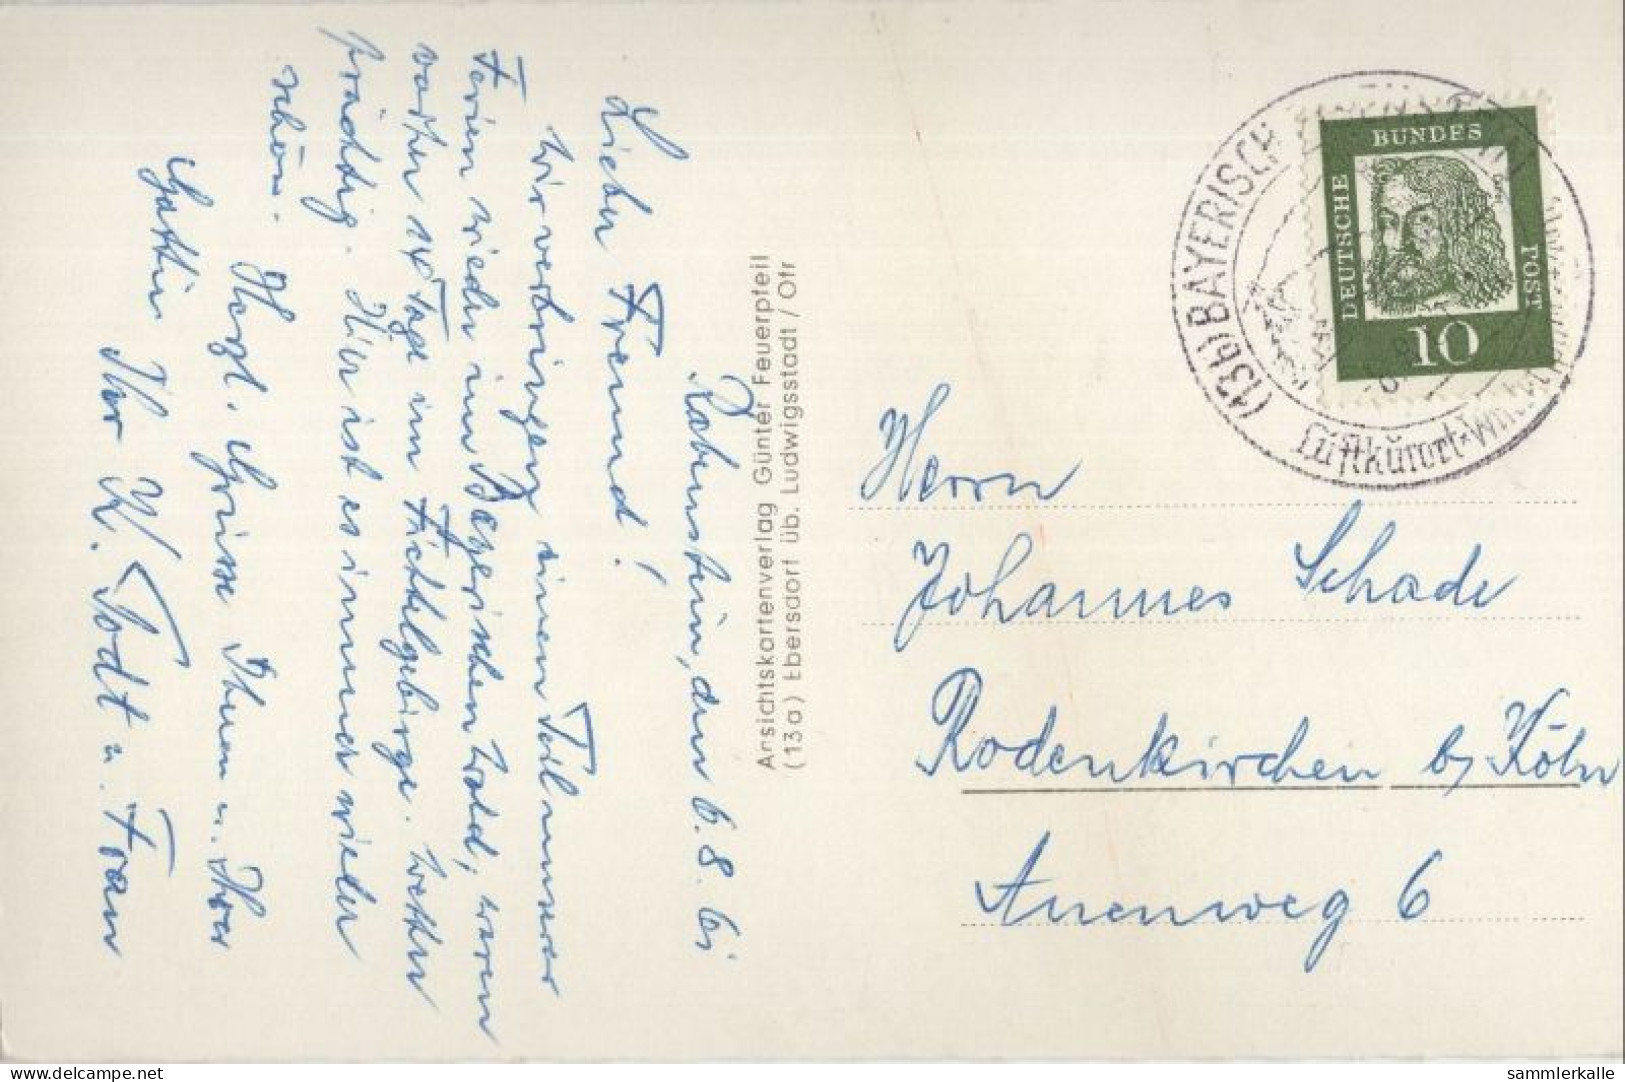 Rabenstein, den 6.8.61
Lieber Freund!
Wir verbringen einen Teil unserer
Ferien wieder im Bayerischen Wald, waren
vorher 14 Tage im Fichtelgebirge. Wetter
prächtig. Hier ist es immer wieder
schön.
Herzl. Grüsse Ihnen u. Ihrer
Gattin
Ihr K. Todt u. Frau
Ansichtskartenverlag Günter Feuerpfeil
(13a) Ebersdorf üb. Ludwigsstadt / Ofr
(13b) BAYERISCH
Luftkurort
DEUTSCHE
BUNDES
POST
10
Herrn
Johannes Schade
Rodenkirchen b/ Köln
Auenweg 6
delcampe.net
sammlerkalle